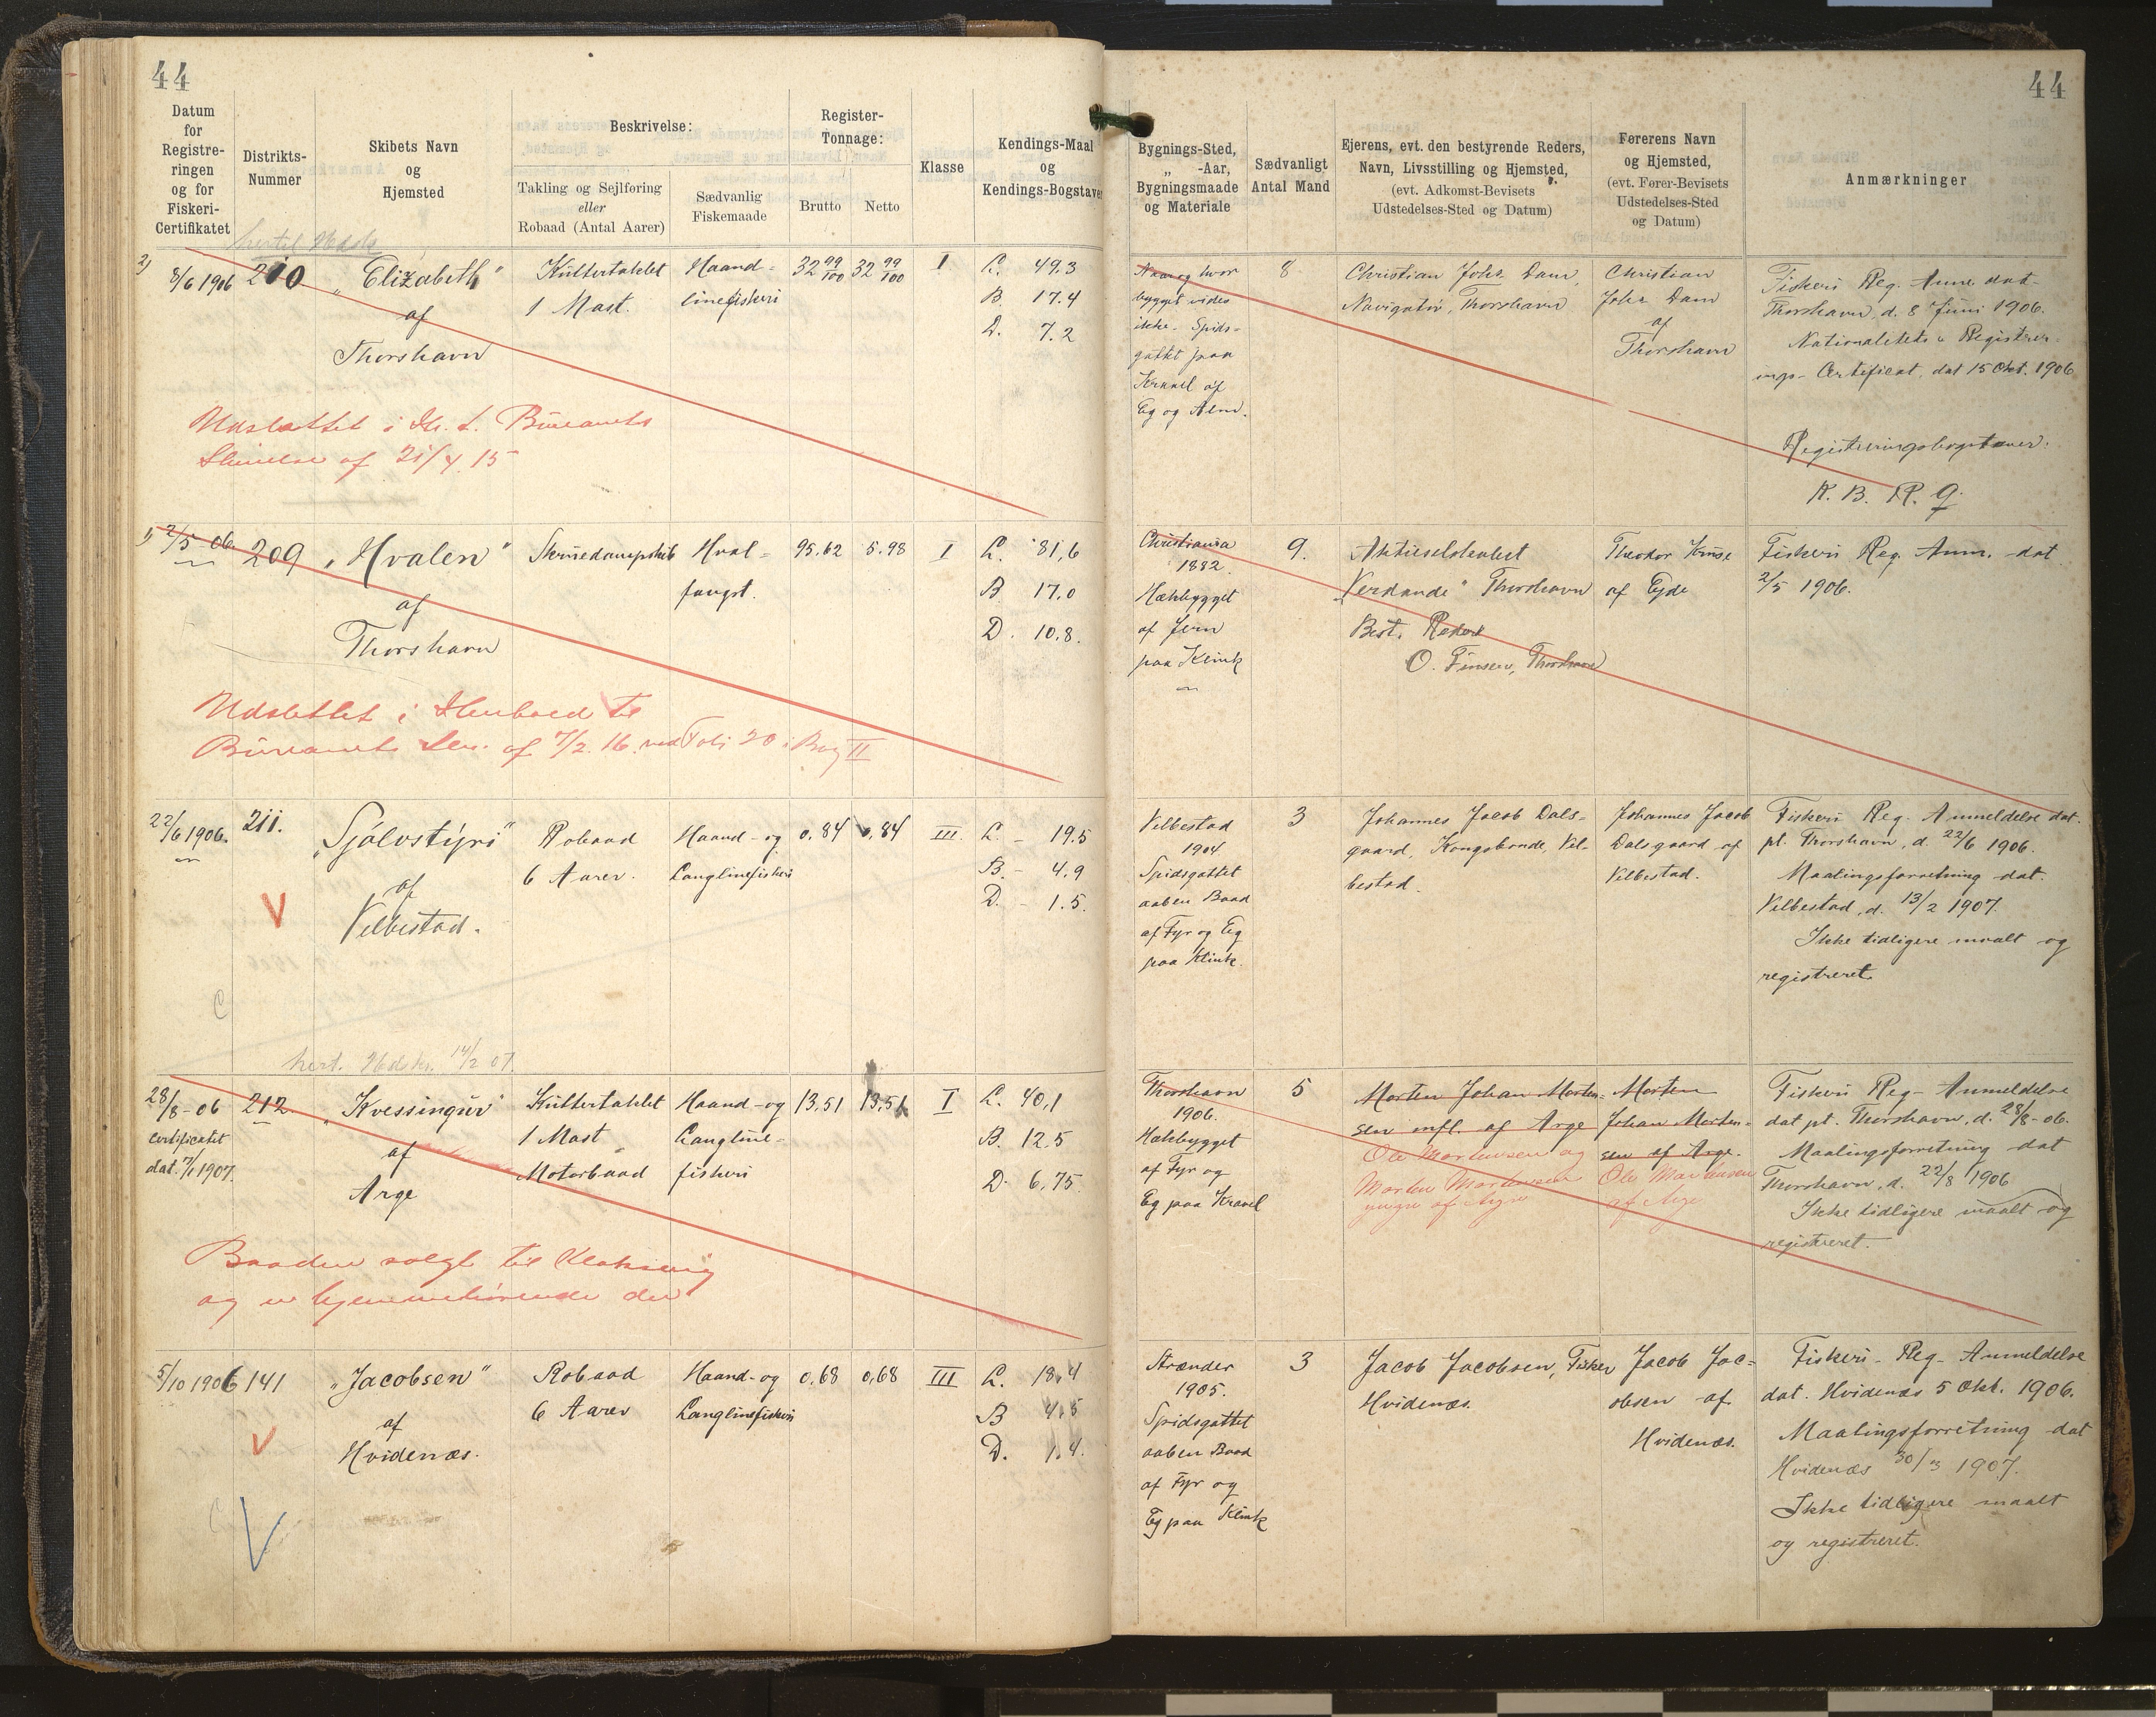 44
44
Datum
for
Registre-
ringen
og for
Fiskeri-
Certifikatet
Distrikts-
Nummer
Skibets Navn
og
Hjemsted
Beskrivelse:
Takling og Sejlføring
eller
Robaad (Antal Aarer)
Sædvanlig
Fiskemaade
Register-
Tonnage:
Brutto
Netto
Klasse
Kendings-Maal
og
Kendings-Bogstaver
Bygnings-Sted,
„ -Aar,
Bygningsmaade
og Materiale
Sædvanligt
Antal Mand
Ejerens, evt. den bestyrende Reders,
Navn, Livsstilling og Hjemsted,
(evt. Adkomst-Bevisets
Udstedelses-Sted og Datum)
Førerens Navn
og Hjemsted,
(evt. Fører-Bevisets
Udstedelses-Sted
og Datum)
Anmærkninger
2)
8/6 1906
210
„Elizabeth"
af
Thorshavn
Kuttertaklet
1 Mast.
Haand-
linefiskeri
32 99/100
32 99/100
I
L. 49.3
B. 17.4
D. 7.2
Naar og hvor
bygget vides
ikke. Spids-
gattet paa
Kravel af
Eg og Alm.
8
Christian Johs Dam,
Navigatør, Thorshavn
Christian
Johs Dam
af
Thorshavn
Fiskeri Reg. Anm. dat.
Thorshavn, d. 8 Juni 1906.
Nationalitets- & Registrer-
ings- Certificat, dat 15 Okt. 1906
Registreringsbogstaver:
N. B. R. G.
Udslettet i H. t. Bureauets
Skrivelse af 21/4. 15
1)
2/5-06.
209
„Hvalen"
af
Thorshavn
Skruedampskib
Hval-
fangst.
95.62
5.98
I
L. 81,6
B 17.0
D. 10.8.
Christiania
1882.
Hækbygget
af Jern
paa Klink
9.
Aktieselskabet
„Verdande" Thorshavn
Best. Reder
O. Finsen, Thorshavn
Theodor Kruse
af Ejde
Fiskeri Reg. Anm. dat
2/5 1906.
Udslettet i Henhold til
Bureauets Skr. af 7/2. 16. ved Foli 20 i Bog II
22/6 1906.
211.
„Sjólvstýri"
af
Velbestad.
Robaad
6 Aarer.
Haand- og
Langlinefiskeri
0.84
0,84
III.
L. - 19.5
B. - 4.9
D. - 1.5.
Velbestad
1904
Spidsgattet
aaben Baad
af Fyr og Eg
paa Klink.
3
Johannes Jacob Dals-
gaard, Kongsbonde, Vel-
bestad.
Johannes Jacob
Dalsgaard af
Velbestad.
Fiskeri Reg. Anmeldelse dat.
pt. Thorshavn, d. 22/6 1906.
Maalingsforretning dat.
Velbestad, d. 13/2 1907.
Ikke tidligere maalt og
registreret.
V
28/8-06
Certificatet
dat. 7/1 1907.
212.
„Kvessingur"
af
Arge
Kuttertaklet
1 Mast
Motorbaad
Haand- og
Langline-
fiskeri
13,51
13,51
I
L. 40,1
B. 12.5
D. 6,75.
Thorshavn
1906.
Hækbygget
af Fyr og
Eg paa Kravel
5
Morten Johan Morten-
sen mfl. af Arge
Ole Mortensen og
Morten Mortensen
yngre af Arge
Morten
Johan Morten-
sen af Arge.
Ole Mortensen
af Arge
Fiskeri Reg- Anmeldelse
dat pt. Thorshavn, d. 28/8-06.
Maalingsforretning dat
Thorshavn, d. 22/8 1906
Ikke tidligere maalt og
registreret.
Baaden solgt til Klaksvig
og er hjemmehørende der
5/10 1906
141
„Jacobsen"
af
Hvidenæs.
Robaad
6 Aarer
Haand- og
Langlinefiskeri
0,68
0,68
III
L. 18,4
B 4,5
D. 1,4.
Strænder
1905.
Spidsgattet
aaben Baad
af Fyr og
Eg paa Klink
3
Jacob Jacobsen, Fisker
Hvidenæs.
Jacob Jac-
obsen af
Hvidenæs.
Fiskeri- Reg- Anmeldelse
dat. Hvidenæs 5 Okt. 1906.
Maalingsforretning dat
Hvidenæs 30/3 1907.
Ikke tidligere maalt
og registreret.
V
V